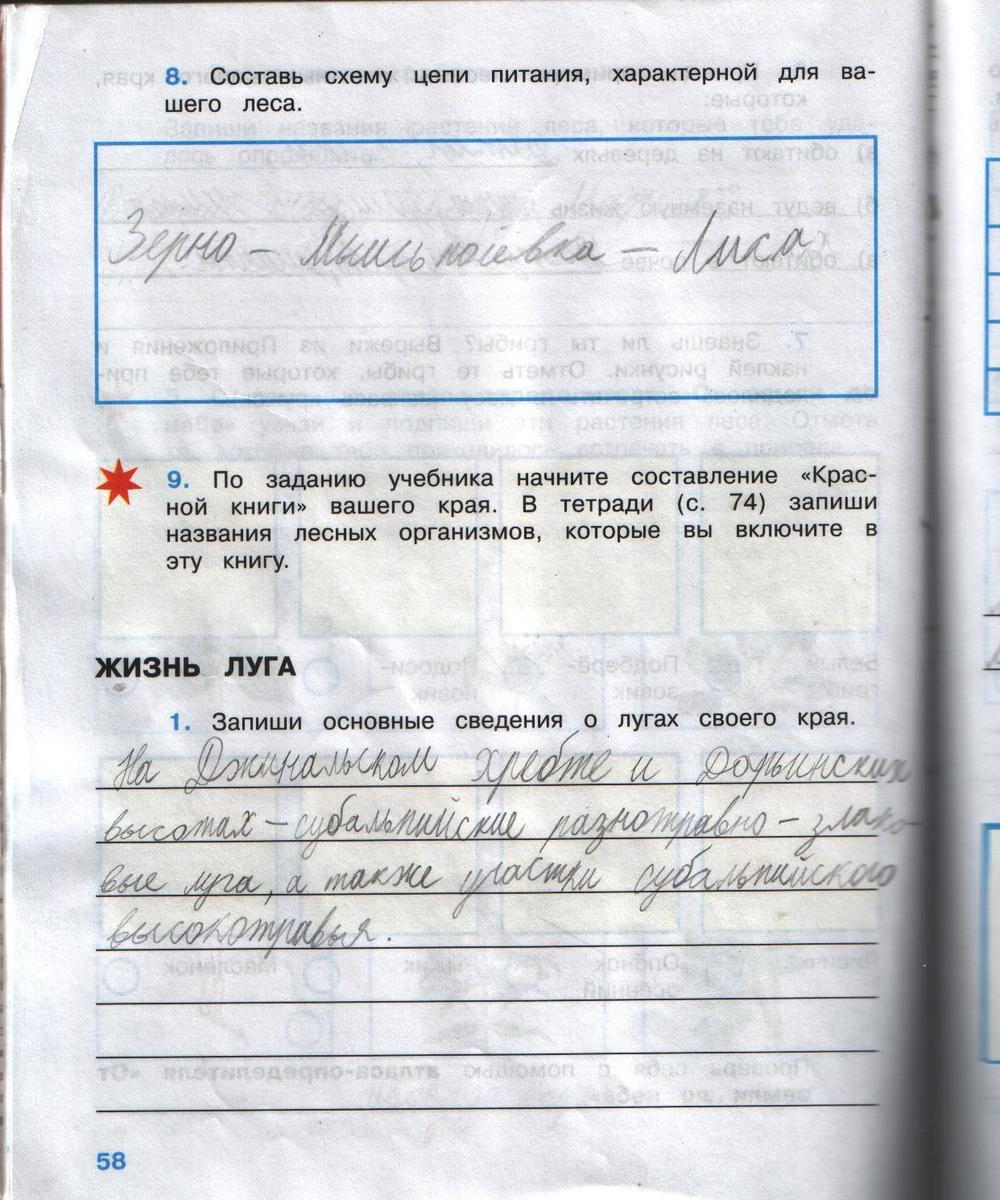 8. Составь схему цепи питания, характерной для ва-
шего леса.
Зерно – Мышь полёвка – Лиса
9. По заданию учебника начните составление «Крас-
ной книги» вашего края. В тетради (с. 74) запиши
названия лесных организмов, которые вы включите в
эту книгу.
ЖИЗНЬ ЛУГА
1. Запиши основные сведения о лугах своего края.
На Джинальском хребте и Дарьинских
высотах – субальпийские разнотравно – злако-
вые луга, а также участки субальпийского
высокотравья.
58